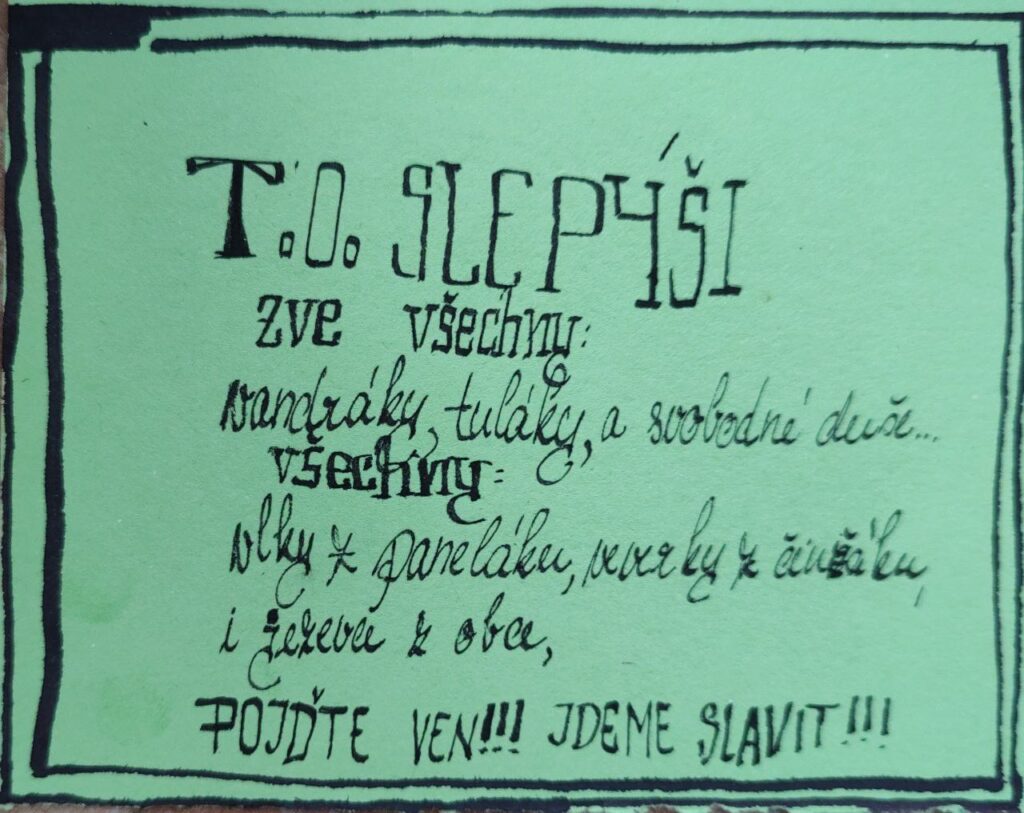 T.O. SLEPÝŠI
zve všechny:
vandráky, tuláky, a svobodné duše...
všechny:
vlky z paneláku, veverky z činžáku,
i zezeva z obce,
POJĎTE VEN!!! JDEME SLAVIT!!!